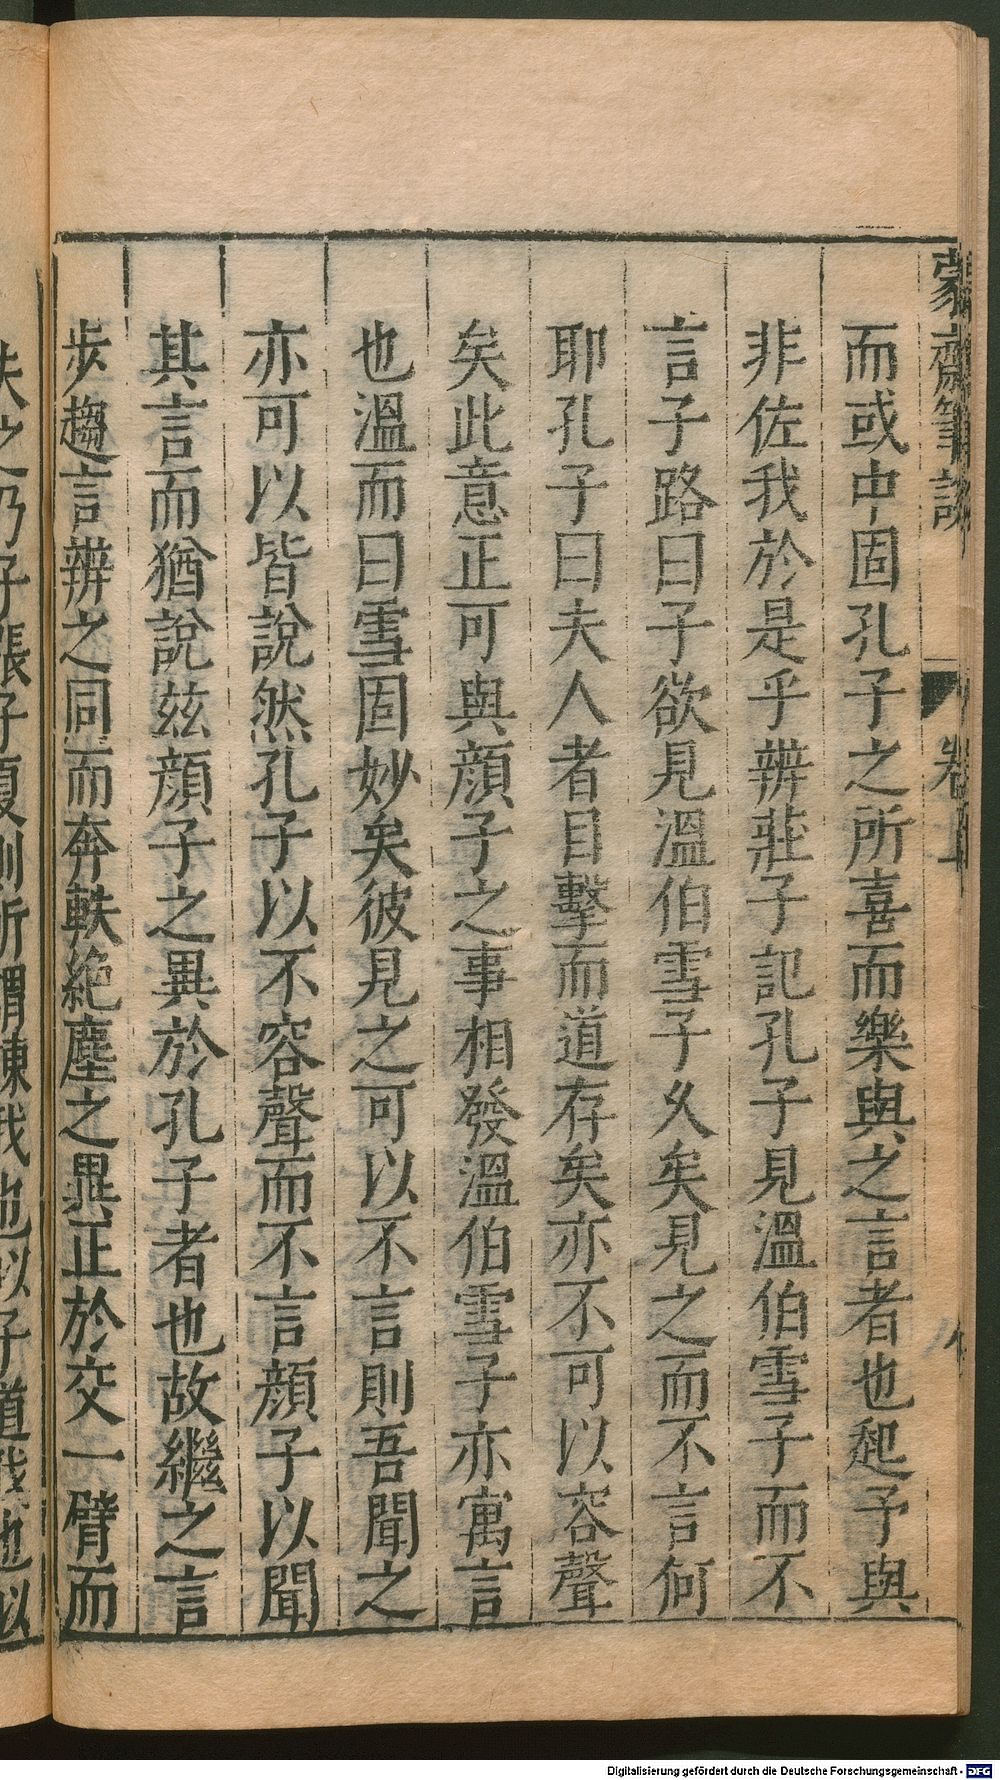 蒙齋筆談
卷上
而或中固孔子之所喜而樂與之言者也起予與
非佐我於是乎辨莊子記孔子見溫伯雪子而不
言子路曰子欲見溫伯雪子久矣見之而不言何
耶孔子曰夫人者目擊而道存矣亦不可以容聲
矣此意正可與顔子之事相發溫伯雪子亦寓言
也溫而曰雪固妙矣彼見之可以不言則吾聞之
亦可以皆說然孔子以不容聲而不言顔子以聞
其言而猶說兹顔子之異於孔子者也故繼之言
步趨言辨之同而奔軼絶塵之異正於交一臂而
失之乃子張子夏則所謂諫我也似子道我也似
Digitalisierung gefördert durch die Deutsche Forschungsgemeinschaft - DFG